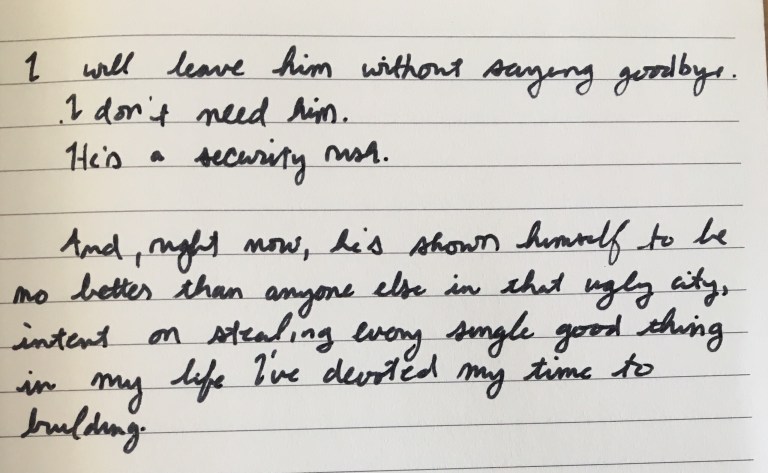 I will leave him without saying goodbye.
I don't need him.
He's a security risk.
And, right now, he's shown himself to be
no better than anyone else in that ugly city,
intent on stealing every single good thing
in my life I've devoted my time to
building.